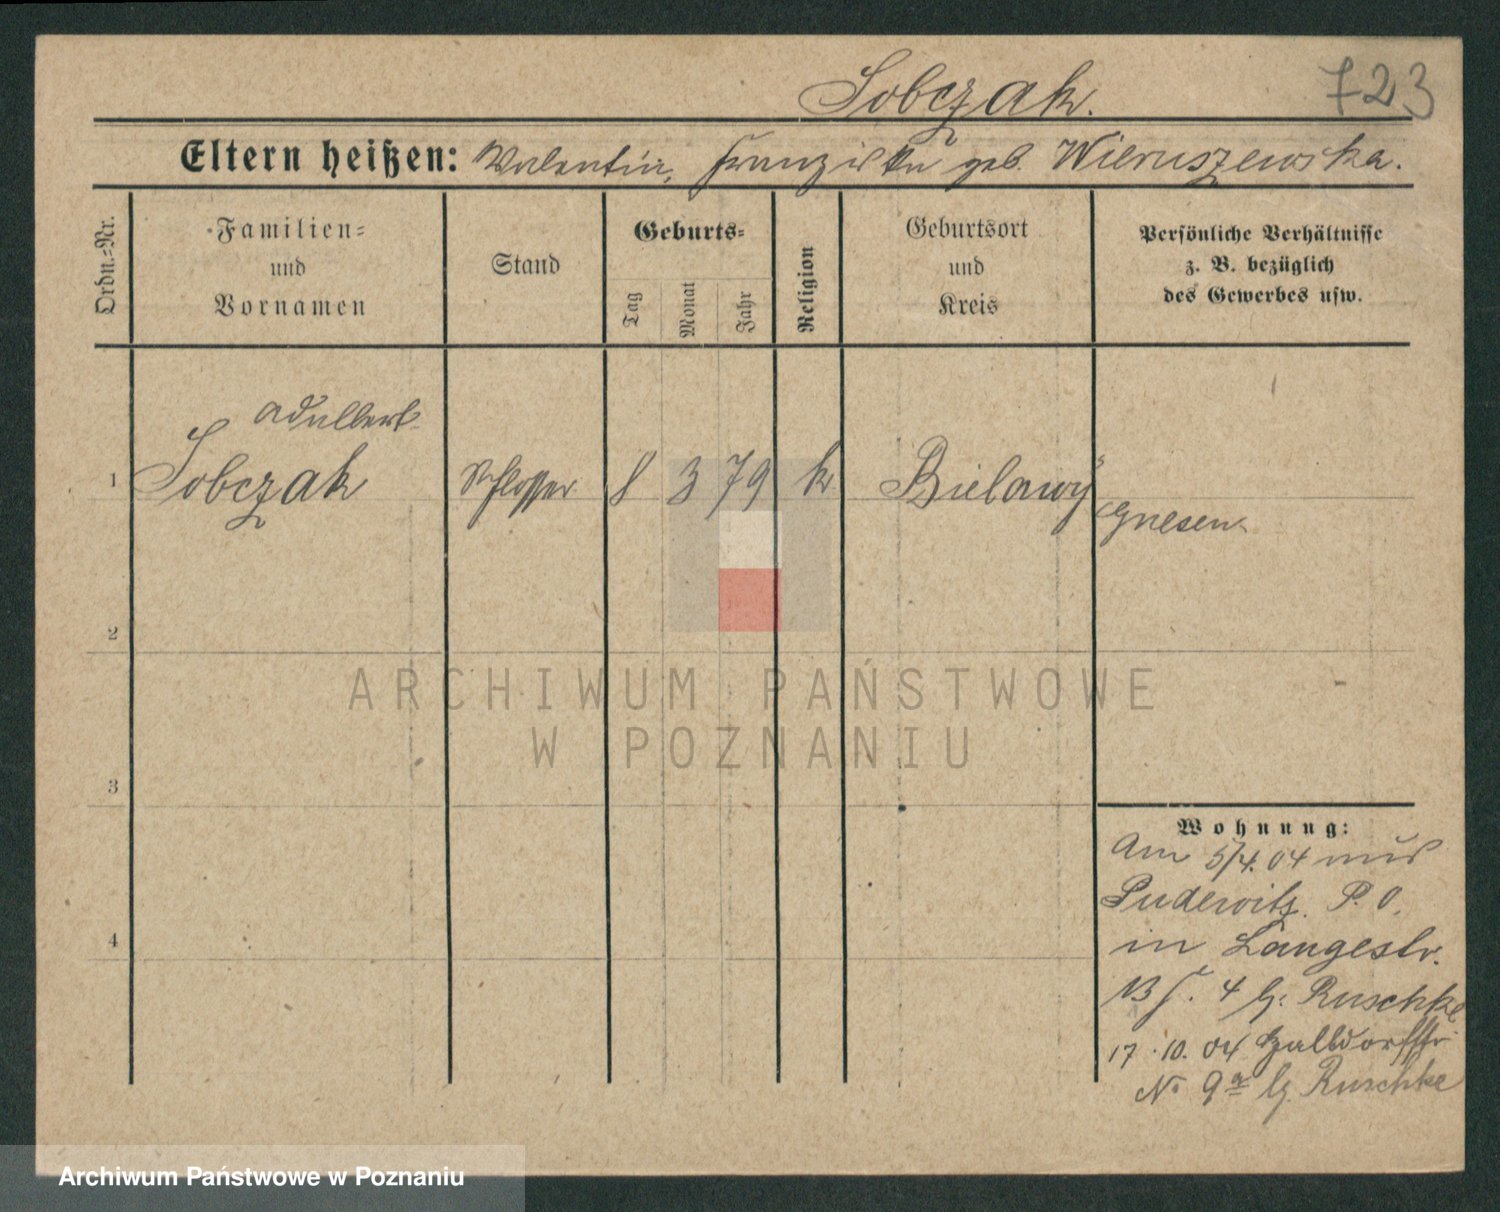 Sobczak. 723
Eltern heißen: Valentin, Franziska geb. Wieruszewska.
Ordn.-Nr.
Familien-
und
Vornamen
Stand
Geburts-
Tag
Monat
Jahr
Religion
Geburtsort
und
Kreis
Persönliche Verhältnisse
z. B. bezüglich
des Gewerbes usw.
Adalbert
1 Sobczak Schlosser 8 3 79 k Bielawy
Gnesen
2
3
4
Wohnung:
Am 5/4. 04 aus
Pudewitz. P. O.
in Langestr.
13 4 b. Ruschke
17. 10. 04
No 9a b. Ruschke
ARCHIWUM PAŃSTWOWE
W POZNANIU
Archiwum Państwowe w Poznaniu